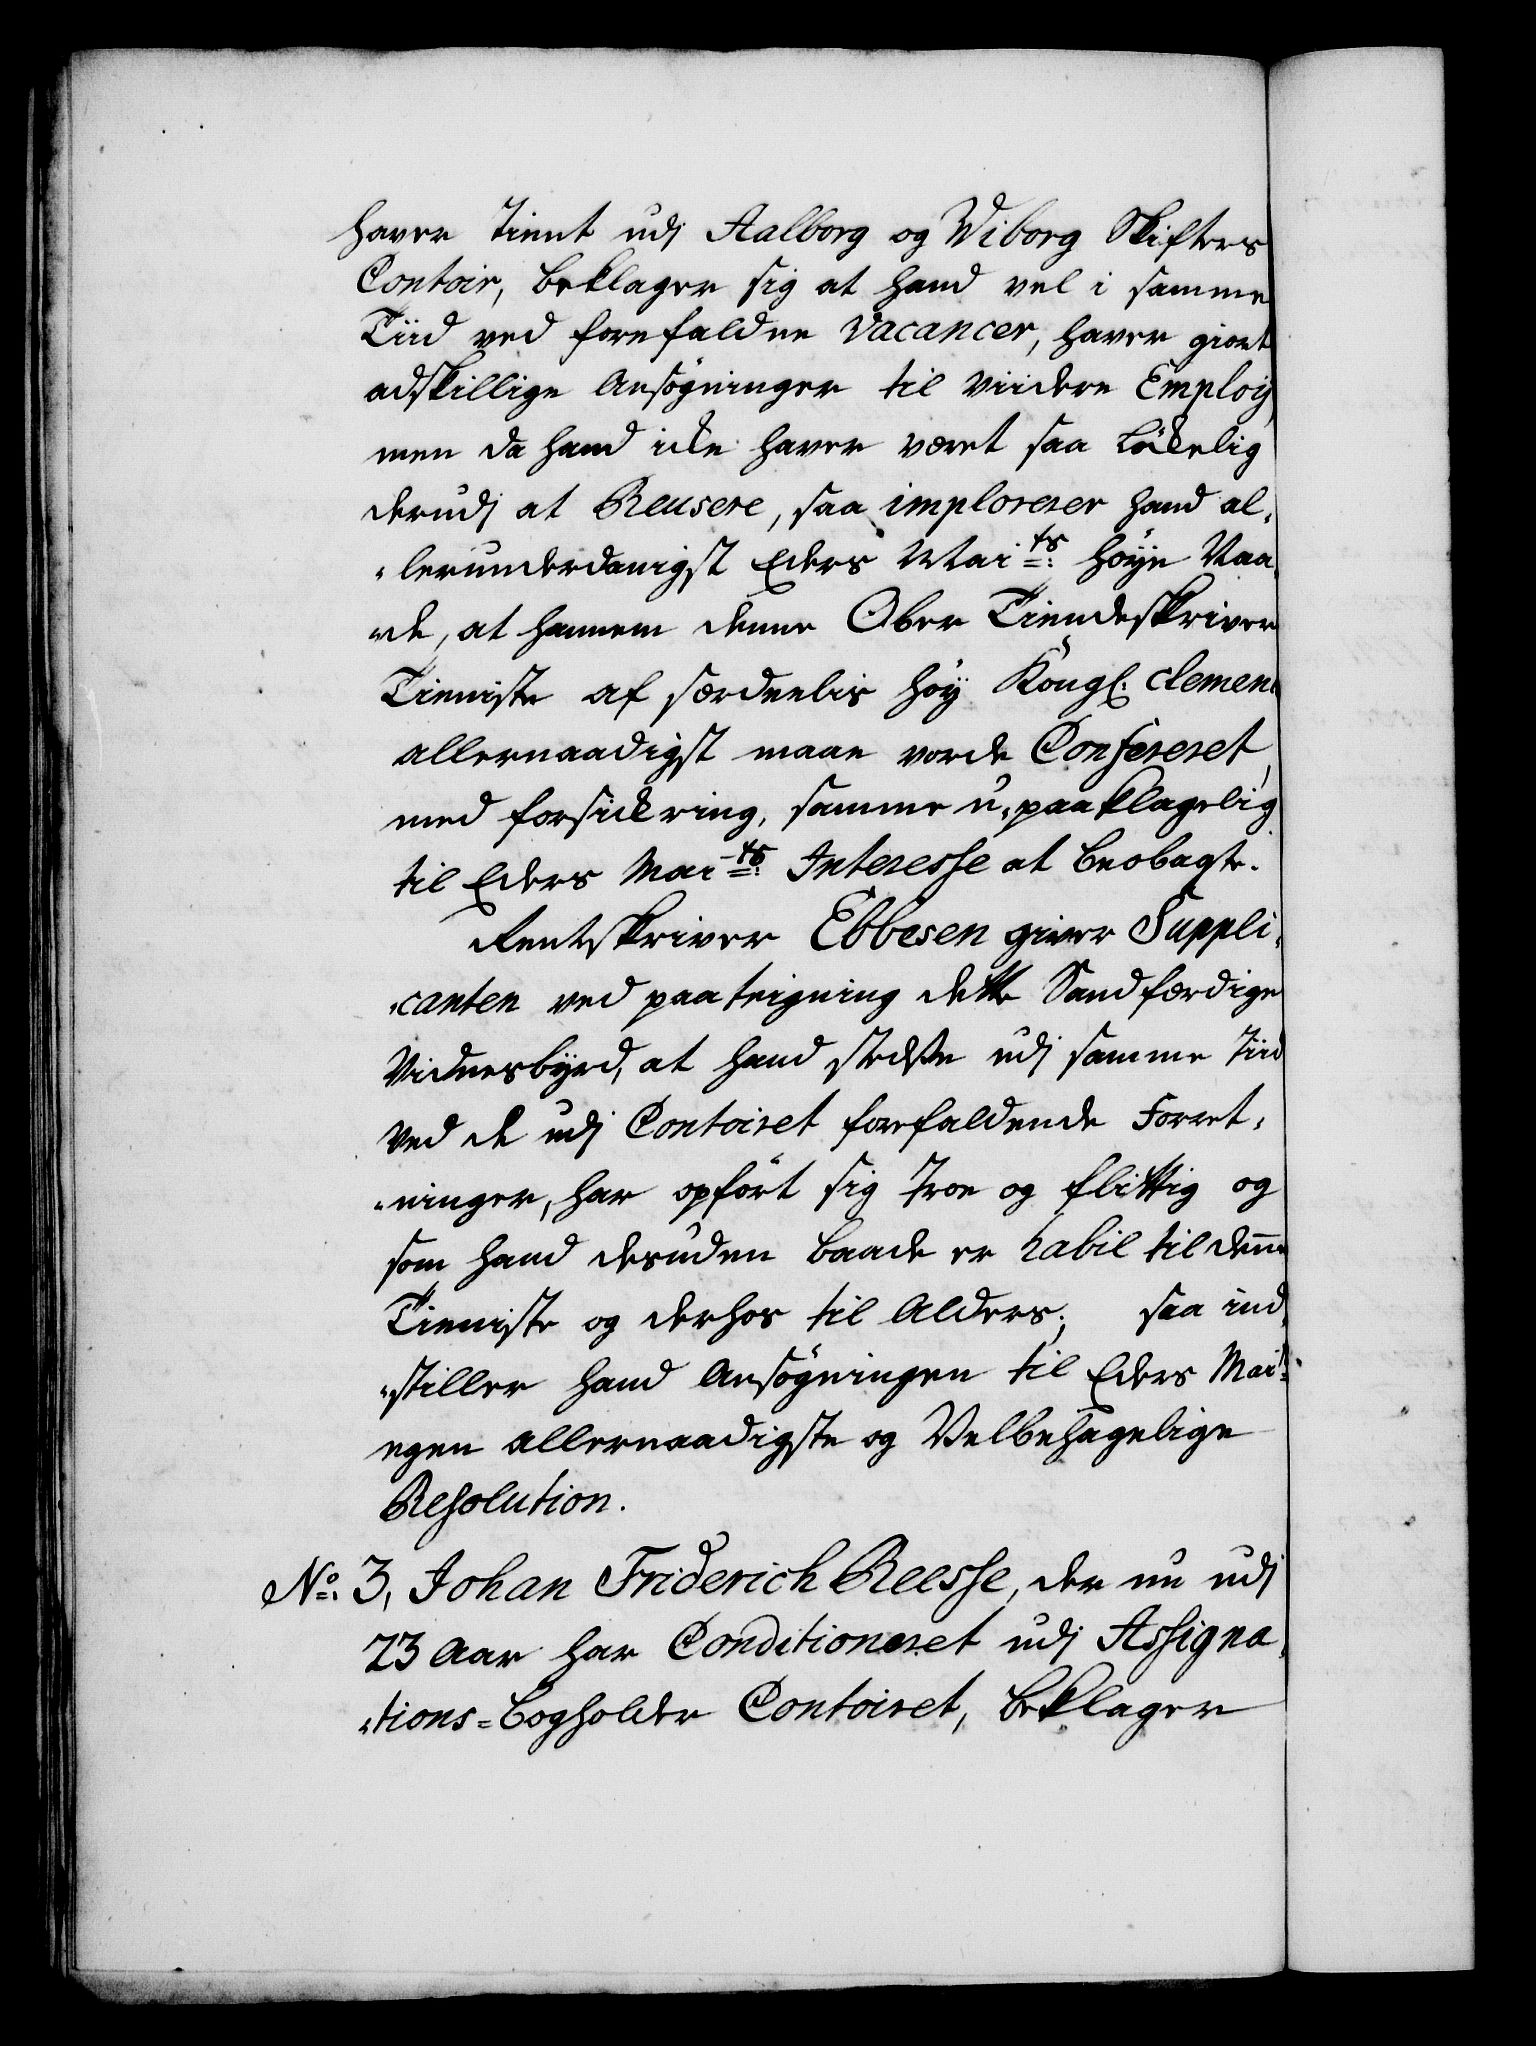 haver tient udj Aalborg og Wiborg Skifters
Contoir, beklager sig at hand vel i samme
Tiid ved forefaldne Vacancer, haver giort
adskillige Ansøgninger til viidere Employ,
men da hand icke haver været saa løckelig
derudj at Reusere, saa imploreer hand al„
„lerunderdanigst Eders Mai=ts: høye Naa„
„de, at hannem denne Ober Tiendeskriver
Tieniste af særdeelis høy Kongl: clemen
allernaadigst maae vorde Confereret,
med forsickring, samme u„paaklagelig
til Eders Mai=ts: Interesse at beobagte.
Rentskriver Ebbesen giver Suppli„
„canten ved paateigning dette Sandfærdige
Vidnesbyrd, at hand stedse udj samme Tiid
ved de udj Contoiret forefaldende Forret„
„ninger, har opført sig troe og flittig og
som hand desuden baade er habil til denne
Tieniste og derhos til Alders; saa ind„
„stiller hand Ansøgningen til Eders Mai=ts
egen allernaadigste og Velbehagelige
Resolution.
No: 3, Johan Friderich Reesse, der nu udj
23 Aar har Conditioneret udj Assigna„
„tions=Bogholder Contoiret, beklager